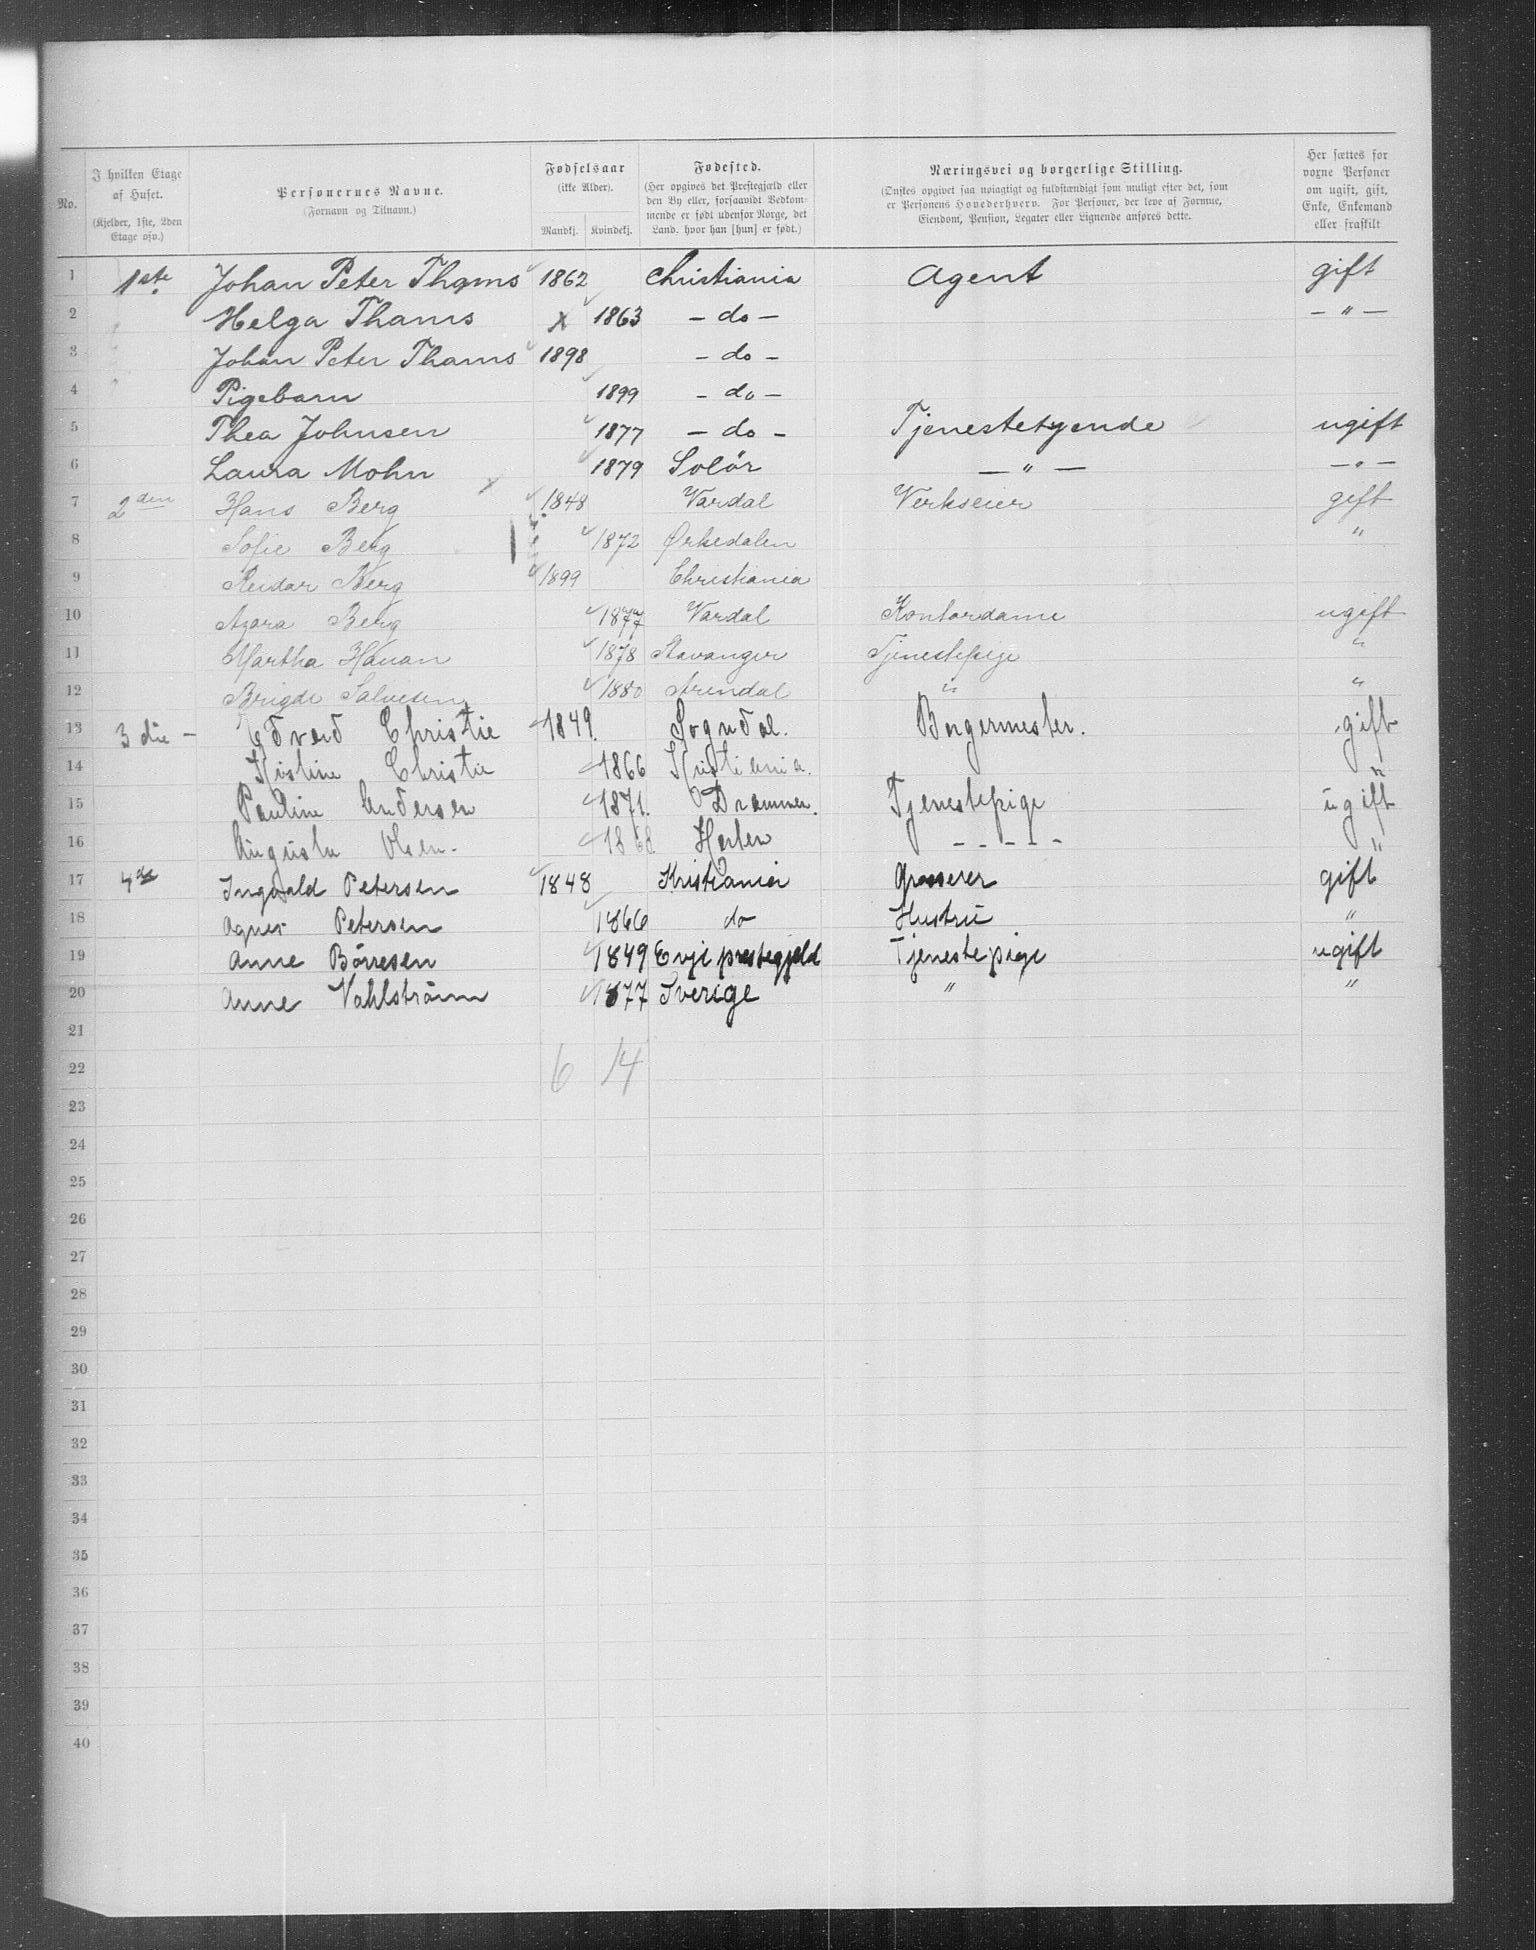 No.
I hvilken Etage af Huset.
(Kjelder, 1ste, 2den Etage osv.)
Personernes Navne.
(Fornavn og Tilnavn.)
Fødselsaar
(ikke Alder).
Mandkj. Kvindekj.
Fødested.
(Her opgives det Prestegjæld eller den By eller, forsaavidt Vedkommende er født udenfor Norge, det Land, hvor han [hun] er født.)
Næringsvei og borgerlige Stilling.
(Ønskes opgivet saa nøiagtigt og fuldstændigt som muligt efter det, som er Personens Hovederhverv. For Personer, der leve af Formue, Eiendom, Pension, Legater eller Lignende anføres dette.
Her sættes for voxne Personer om ugift, gift, Enke, Enkemand eller fraskilt
1 1ste Johan Peter Thams 1862 Christiania Agent gift
2 Helga Thams x 1863 – do – – " –
3 Johan Peter Thams 1898 – do –
4 Pigebarn 1899 – do –
5 Thea Johnsen 1877 – do – Tjenestetyende ugift
6 Laura Mohn 1879 Solör – " – – " –
7 2den Hans Berg 1848 Vardal Verkseier gift
8 Sofie Berg 1872 Ørkedalen "
9 Reidar Berg 1899 Christiania
10 Berg 1877 Vardal Kontordame ugift
11 Martha Hauan 1878 Stavanger Tjenestepige "
12 Salvesen 1880 Arendal " "
13 3die – Edvard Christie 1849. Sogndal. Borgermester. gift
14 Kristine Christie 1866 Kristiania. "
15 Pauline Andersen 1871. Drammen. Tjenestepige ugift
16 Augusta Olsen. 1868 Horten – – – – – "
17 4de Ingvald Petersen 1848 Kristiania Grosserer gift
18 Agnes Petersen 1866 do Hustru "
19 Anne Börresen 1849 Evje prestegjeld Tjenestepige ugift
20 Anne Vahlström 1877 Sverige " "
21
22 6 14
23
24
25
26
27
28
29
30
31
32
33
34
35
36
37
38
39
40